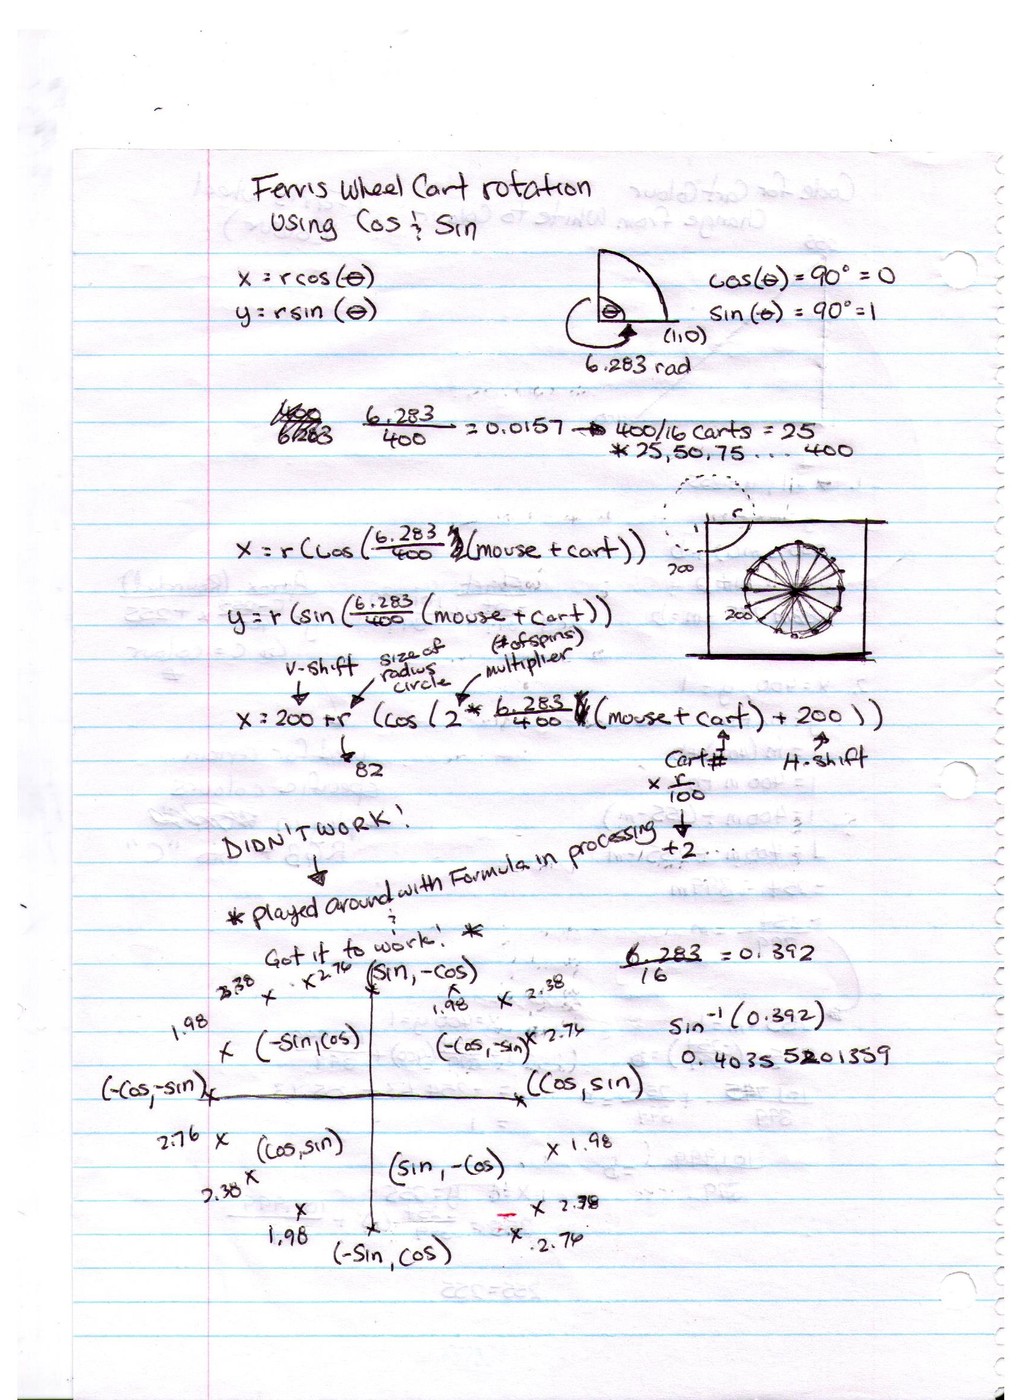 Ferris Wheel Cart rotation
using Cos & Sin
x = rcos(θ)
y = rsin(θ)
cos(θ) = 90° = 0
sin(θ) = 90° = 1
θ
(1,0)
6.283 rad
6.283/400 = 0.0157 → 400/16 carts = 25
* 25, 50, 75 ... 400
x = r(cos(6.283/400 (mouse + cart))
y = r(sin(6.283/400 (mouse + cart))
r
200
200
V-shift
size of radius circle
(# of spins) multiplier
x = 200 + r (cos(2 * 6.283/400 (mouse + cart) + 200))
82
Cart#
x r/100
+2...
H-shift
DIDN'T WORK!
* played around with Formula in processing
&
Got it to work! *
6.283/16 = 0.392
sin⁻¹(0.392)
0.40355201359
2.38 x x 2.76 (sin, -cos)
1.98 x 2.38
1.98 x (-sin, cos) (-cos, -sin) x 2.76
(-cos, -sin) x x (cos, sin)
2.76 x (cos, sin) (sin, -cos) x 1.98
2.38 x x 2.38
x 1.98 x 2.76
(-sin, cos)